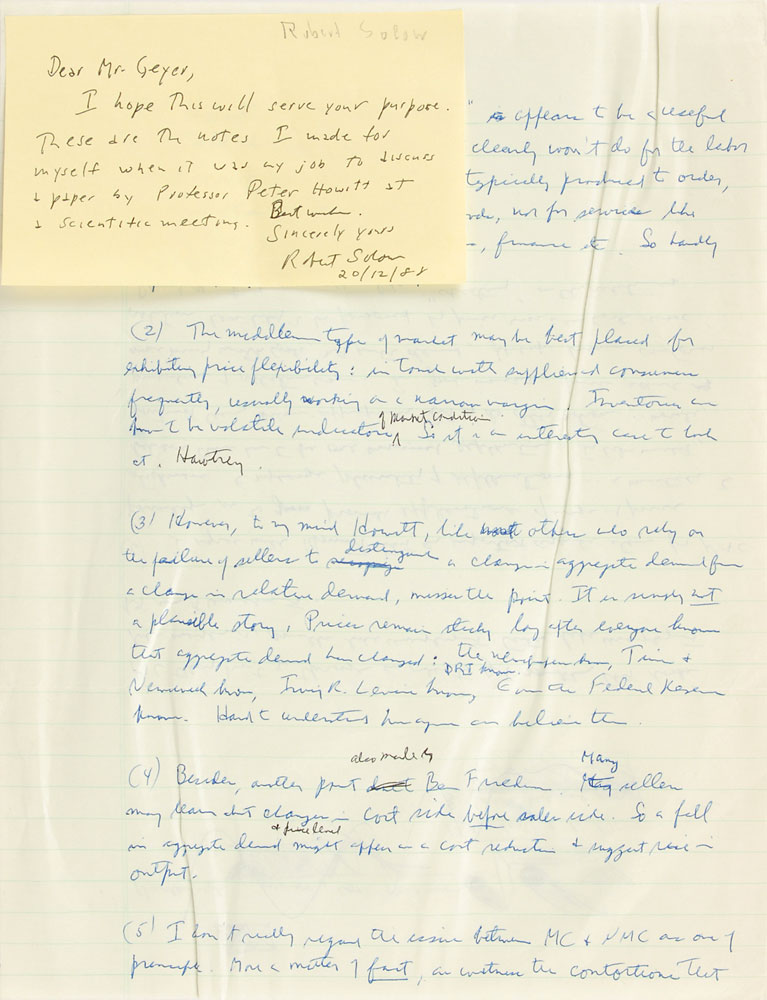 Robert Solow
Dear Mr. Geyer,
I hope this will serve your purpose.
These are the notes I made for
myself when it was my job to discuss
a paper by Professor Peter Howitt at
a scientific meeting. Best wishes.
Sincerely yours
Robert Solow
20/12/88
" appears to be a useful
clearly won't do for the labor
typically produced to order,
not for services like
, finance etc. So hardly
(2) The middleman type of market may be best placed for
exhibiting price flexibility: in touch with suppliers and consumers
frequently, usually working on a narrow margin. Inventories can
of market conditions
be volatile indicators. So it is an interesting case to look
at. Hawtrey.
(3) However, to my mind Howitt, like most others who rely on
distinguish
the failure of sellers to recognize a change in aggregate demand from
a change in relative demand, misses the point. It is simply not
a plausible story. Prices remain sticky long after everyone knows
that aggregate demand has changed: the newspapers know, Time &
DRI knows.
Newsweek know, Irving R. Levine knows, Even the Federal Reserve
knows. Hard to understand how anyone can believe this.
also made by
Many
(4) Besides, another point Ben Friedman. Many sellers
may learn about changes in cost side before sales side. So a fall
& price level
in aggregate demand might appear as a cost reduction & suggest rise in
output.
(5) I don't really regard the issue between MC & NMC as one of
principle. More a matter of fact, as witness the contortions that